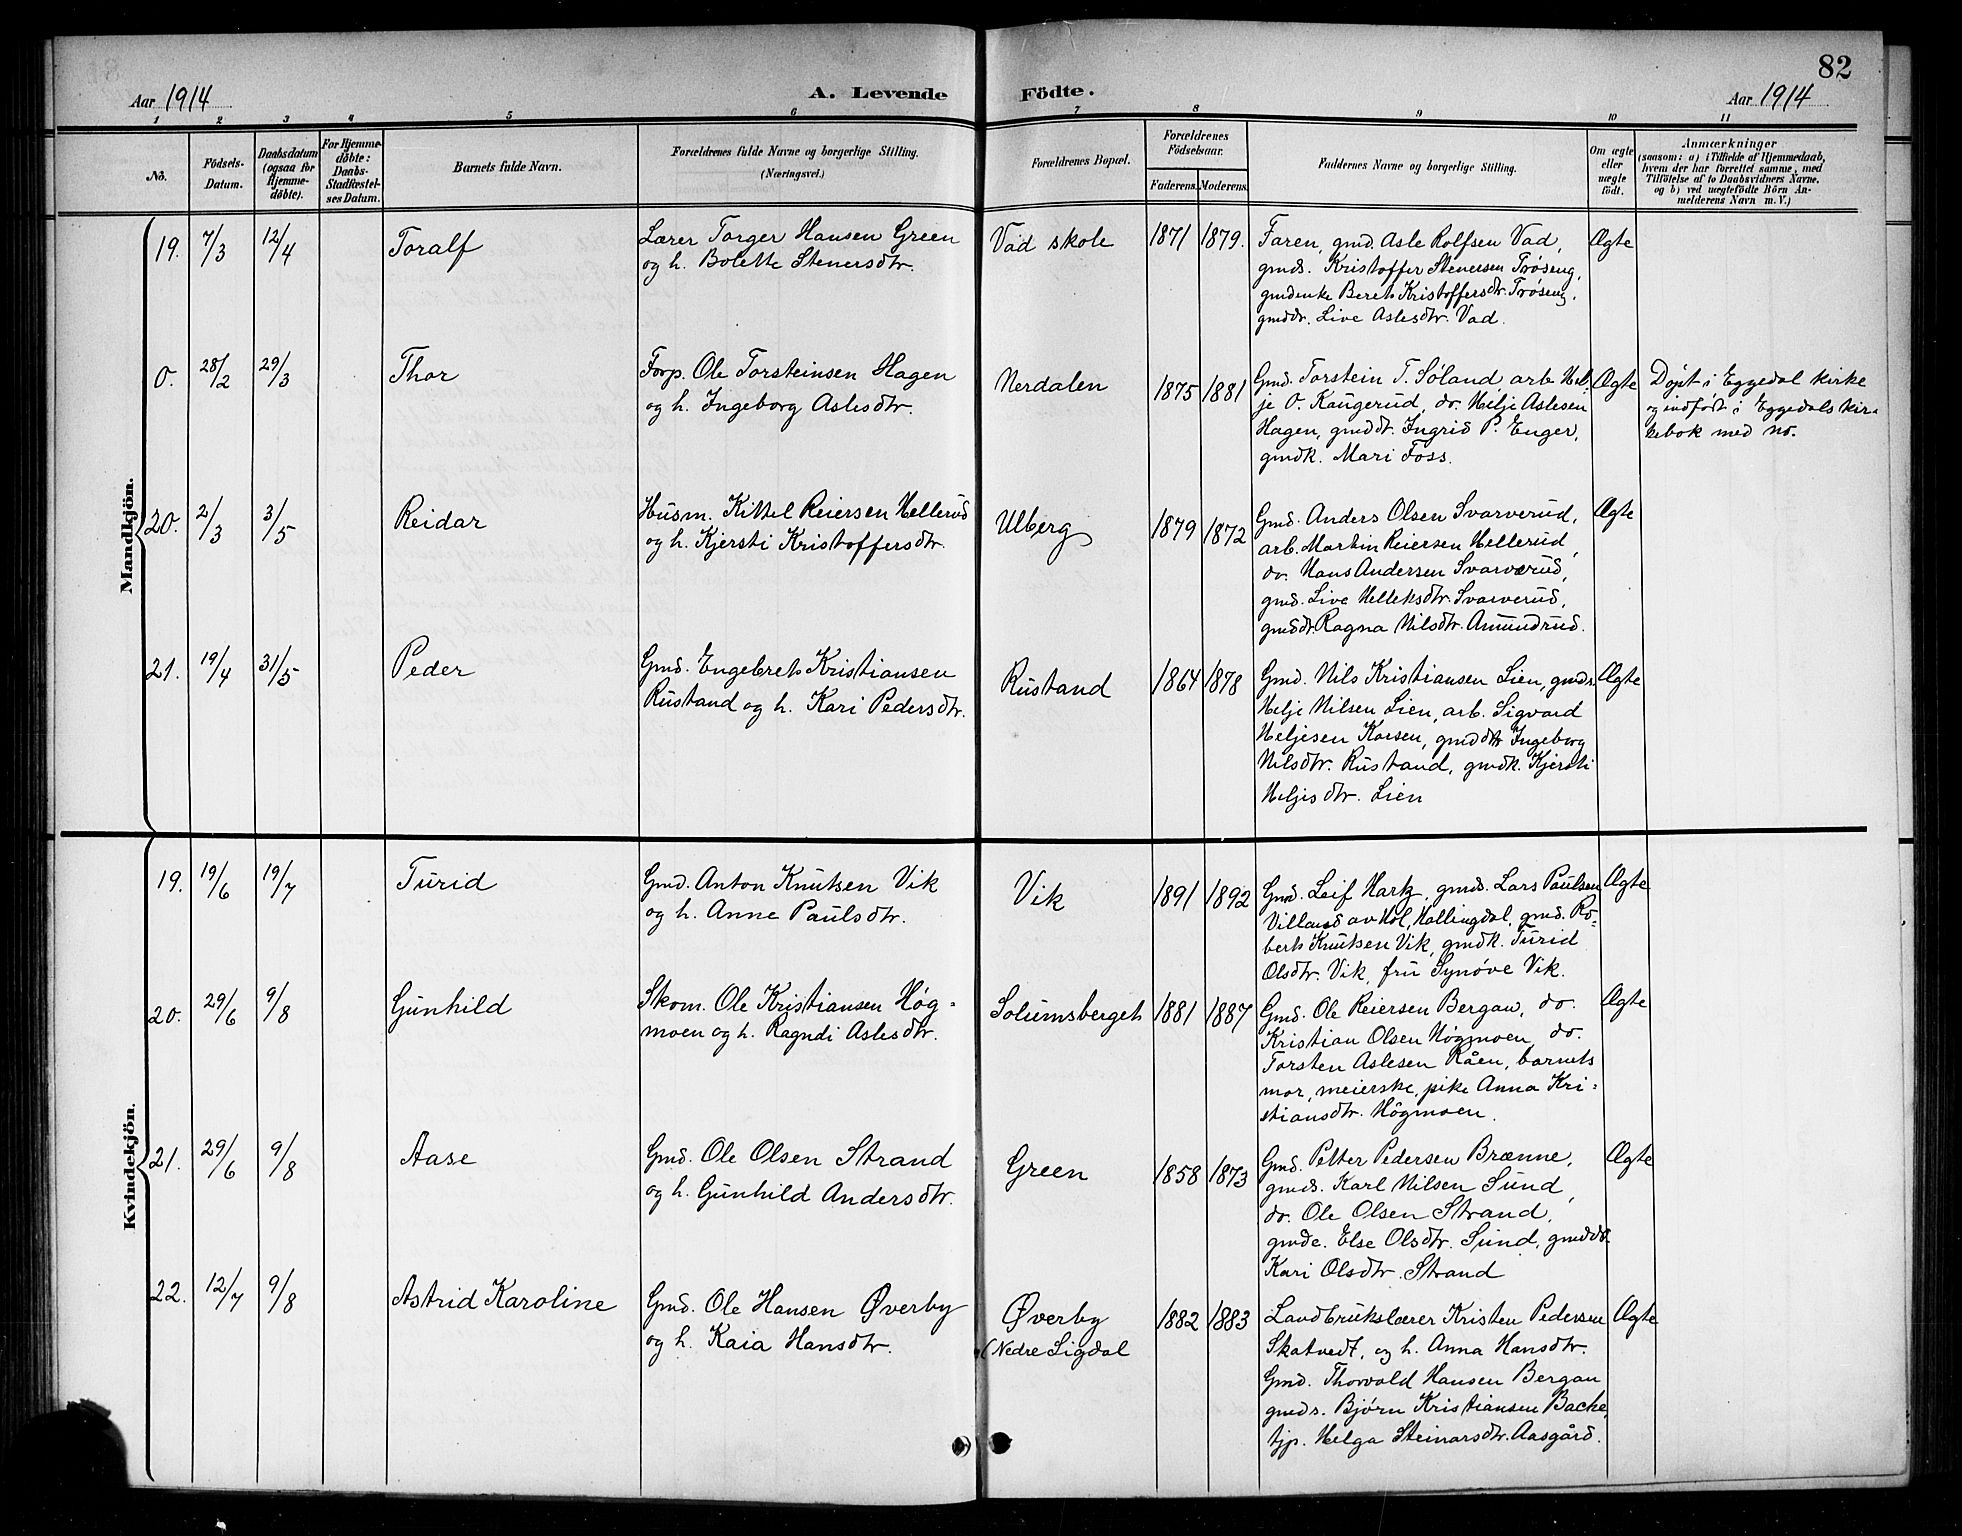 82
Aar 1914
A. Levende Födte.
Aar 1914
1 2 3 4 5 6 7 8 9 10 11
No.
Födsels-Datum.
Daabsdatum (ogsaa for Hjemme-døbte).
For Hjemme-døbte: Daabs-Stadfæstel-ses Datum.
Barnets fulde Navn.
Forældrenes fulde Navne og borgerlige Stilling.
(Næringsvei.)
Forældrenes Bopæl.
Forældrenes Födselsaar.
Faderens. Moderens.
Faddernes Navne og borgerlige Stilling.
Om ægte eller uægte født.
Anmærkninger
(saasom: a) i Tilfælde af Hjemmedaab,
hvem der har forrettet samme, med
Tilføielse af to Daabsvidners Navne,
og b) ved uægtefödte Börn An-
melderens Navn m. V.)
Mandkjön.
19. 7/3 12/4 Toralf
Lærer Torger Hansen Green
og h. Bolette Stenersdtr.
Vad skole 1871 1879.
Faren, gmd. Asle Rolfsen Vad,
gmds. Kristoffer Stenersen Trøseng,
gmdenke Beret Kristoffersdtr. Trøseng,
gmddr. Live Aslesdtr. Vad.
Ægte
0. 28/2 29/3 Thor
Forp. Ole Torsteinsen Hagen
og h. Ingeborg Aslesdtr.
Nerdalen 1875 1881
Gmd. Torstein T. Søland, arb. Hel-
je O. Kaugerud, do. Helje Aslesen
Hagen, gmddt. Ingrid P. Enger,
gmdk. Mari Foss.
Ægte
Døpt i Eggedal kirke
og indført i Eggedals kir-
kebok med no.
20. 2/3 3/5 Reidar
Husm. Kittel Reiersen Hellerud
og h. Kjersti Kristoffersdtr.
Ulberg 1879 1872
Gmd. Anders Olsen Svarverud,
arb. Martin Reiersen Hellerud,
do. Hans Andersen Svarverud,
gmd. Live Helleksdtr. Svarverud,
gmddt. Ragna Nilsdtr. Amundrud.
Ægte
21. 19/4 31/5 Peder
Gmd. Engebret Kristiansen
Rustand og h. Kari Pedersdtr.
Rustand 1864 1878
Gmd. Nils Kristiansen Lien, gmds.
Helje Nilsen Lien, arb. Sigvard
Heljesen Korsen, gmddtr Ingeborg
Nilsdtr. Rustand, gmdk. Kjersti
Heljesdtr. Lien
Ægte
Kvindekjön.
19. 19/6 19/7 Turid
Gmd. Anton Knutsen Vik
og h. Anne Paulsdtr.
Vik 1891 1892
Gmd. Leif Hark, gmds. Lars Paulsen
Villand av Hol, Hallingdal, gmd. Ro-
bert Knutsen Vik, gmdk. Turid
Olsdtr. Vik, fru Synøve Vik.
Ægte
20. 29/6 9/8 Gunhild
Skom. Ole Kristiansen Høg-
moen og h. Ragndi Aslesdtr.
Solumsberget 1881 1887
Gmd. Ole Reiersen Bergan, do.
Kristian Olsen Høgmoen, do.
Torsten Aslesen Råen, barnets
mor, meierske, pike Anna Kri-
stiansdtr. Høgmoen.
Ægte
21. 29/6 9/8 Aase
Gmd. Ole Olsen Strand
og h. Gunhild Andersdtr.
Green 1858 1873
Gmd. Petter Pedersen Brænne,
gmds. Karl Nilsen Sund,
do. Ole Olsen Strand,
gmde. Else Olsdtr. Sund, gmddt.
Kari Olsdtr. Strand
Ægte
22. 12/7 9/8 Astrid Karoline
Gmd. Ole Hansen Øverby
og h. Kaia Hansdtr.
Øverby
(Nedre Sigdal
1882 1883
Landbrukslærer Kristen Pedersen
Skatvedt, og h. Anna Hansdtr.
Gmd. Thorvald Hansen Bergan
gmds. Bjørn Kristiansen Backe,
tjp. Helga Steinarsdtr. Aasgård.
Ægte